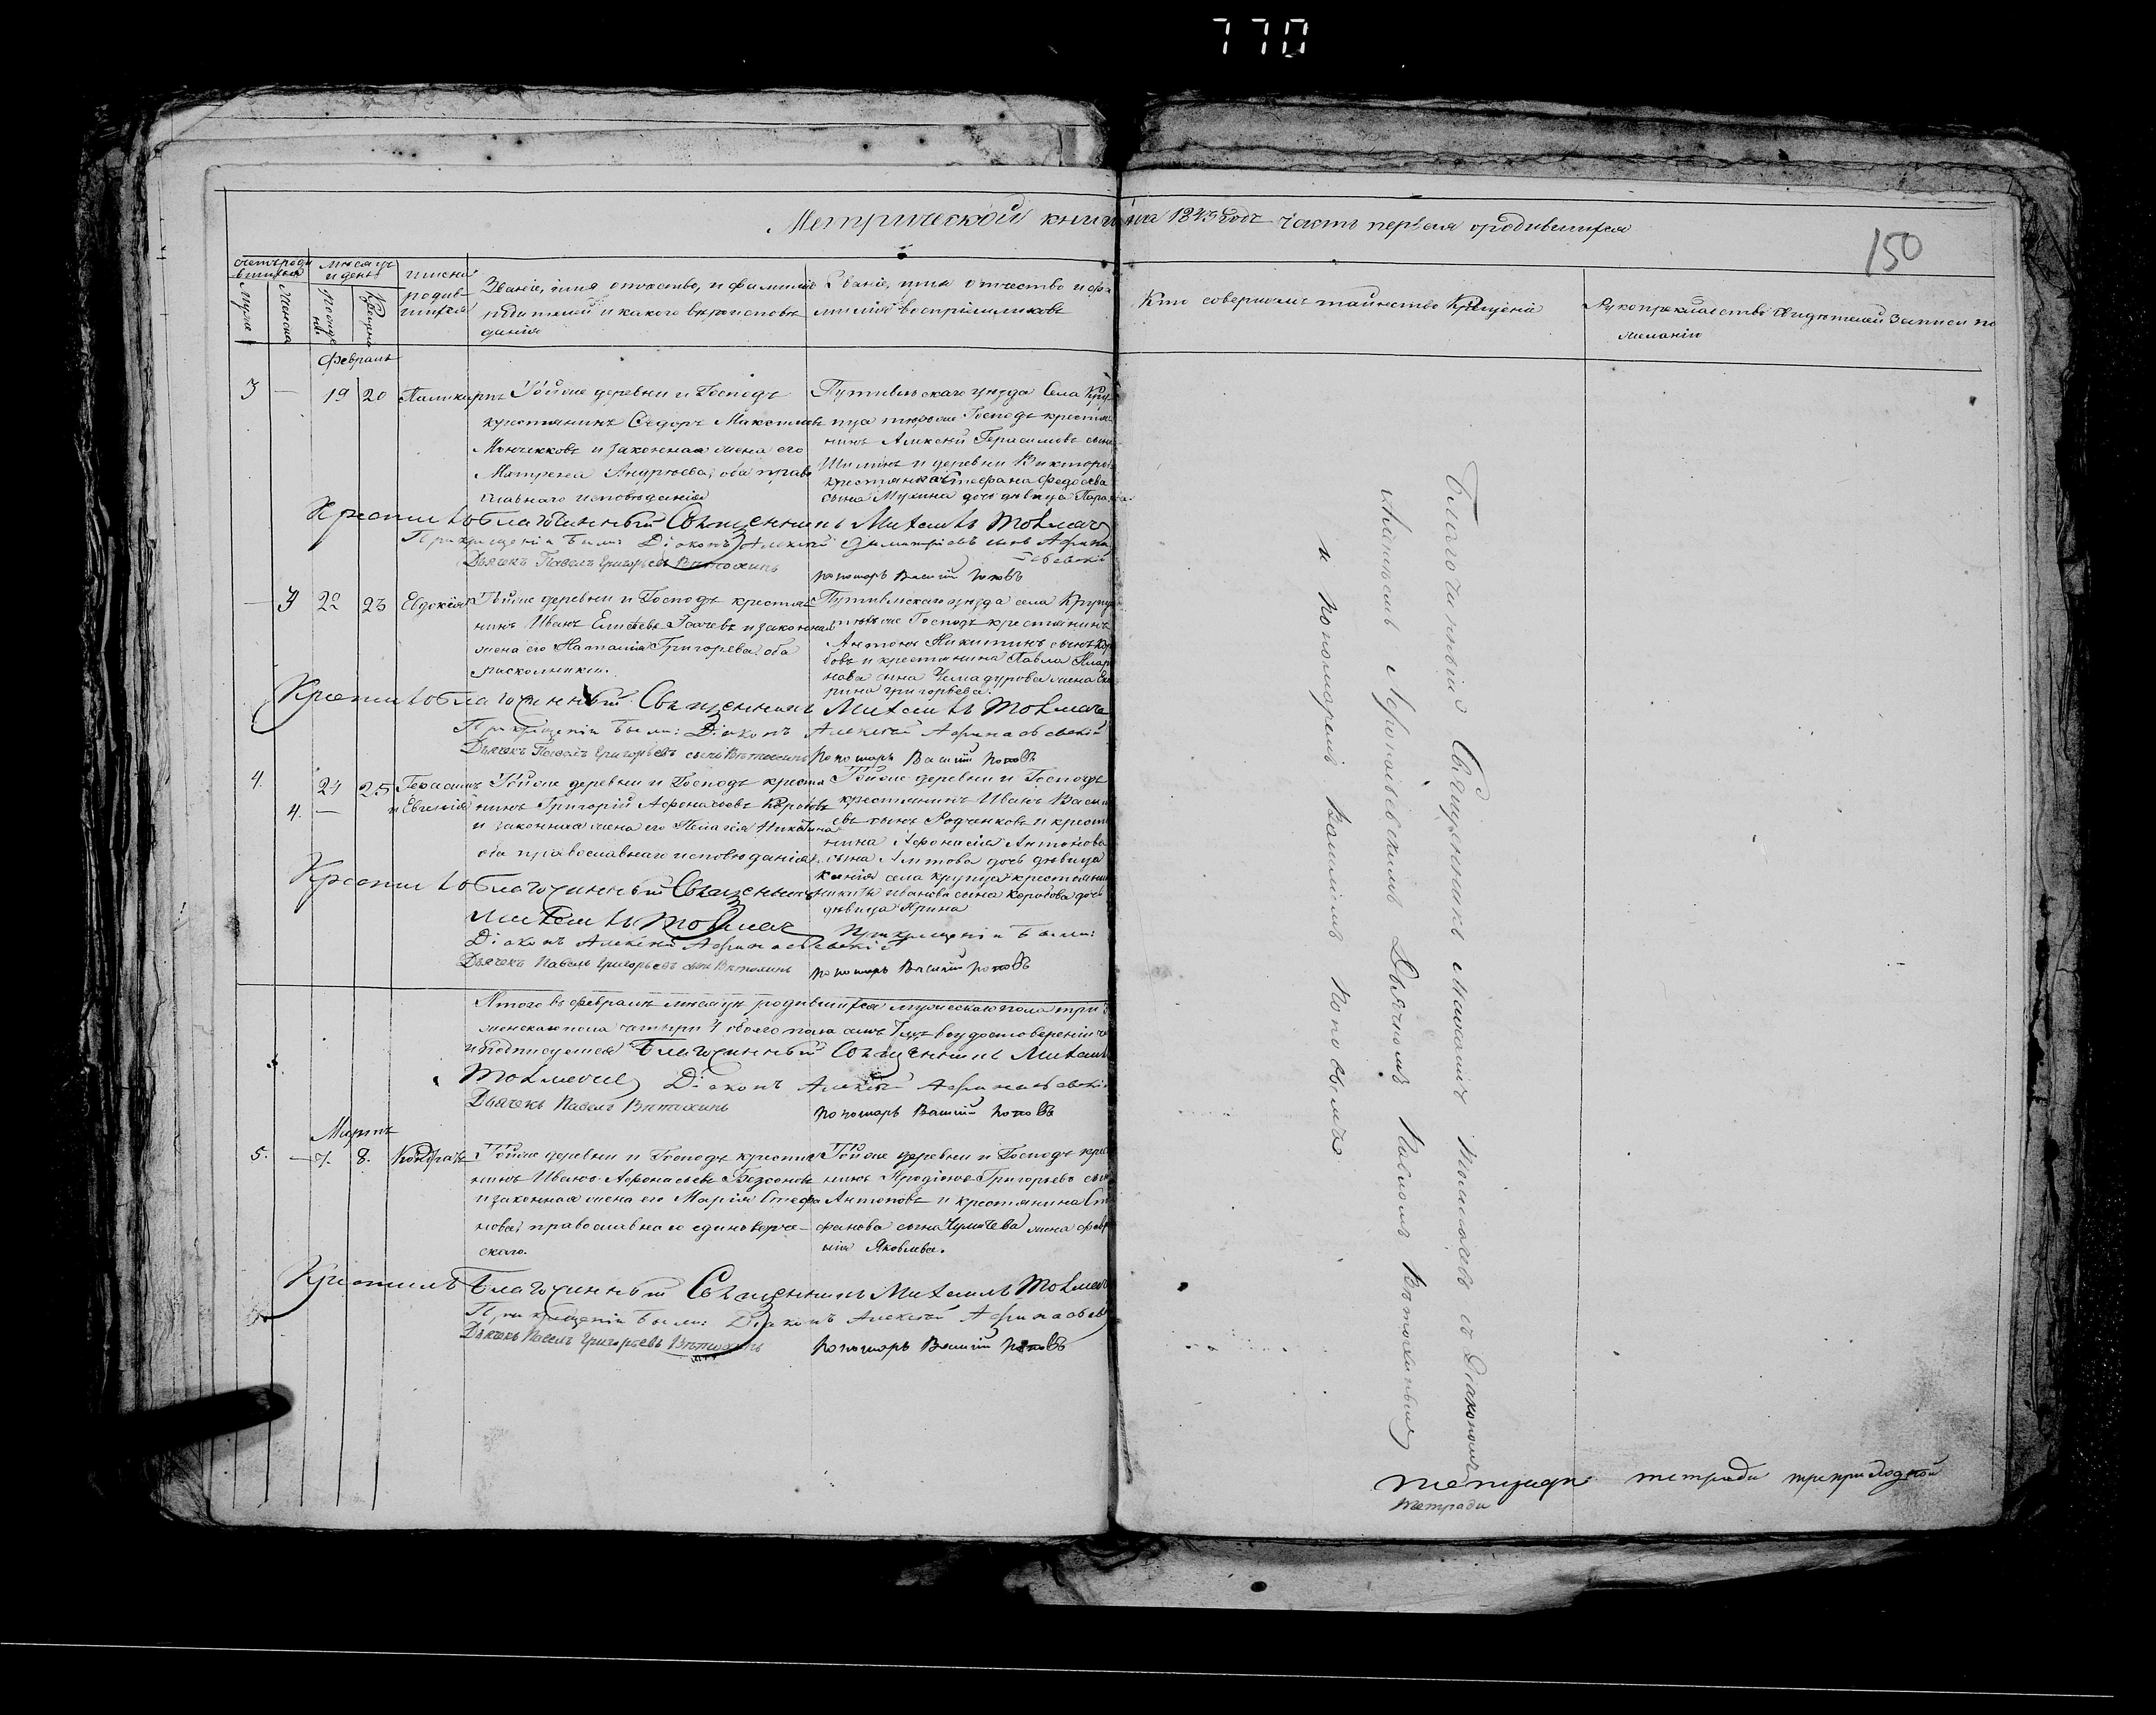 770
Метрической книги на 1843 годъ часть первая о родившихся
150
счетъ роди
вшихся
Мужеска
Женска
месяцъ
и день
Рожде
нія
Крещенія
имена
родив-
шихся
Званіе, имя отчество, и фамилія
родителей и какого вероиспове
данія
Званіе, имя отчество и фа
милія воспріемниковъ
Кто совершалъ таинство Крещенія
Рукоприкладство свидетелей записи по
желанію
Февраль
3 — 19 20 Поликарпъ
Тойже деревни и Господъ
крестьянинъ Сидоръ Максимовъ
и законная жена его
Матрена Андреева, оба право
славнаго исповеданія
Путивльскаго уезда Села Кру
пца техже Господъ крестья
нинъ Алексей Герасимовъ сынъ
Шилинъ и деревни Викторо
крестьянина Стефана Федосева
сына Мухина дочь девица Параск
Крестилъ Благочинный Священникъ Михаилъ Толмачев
При крещеніи были: Діаконъ Алексей Димитріевъ сынъ Афана
сьевскій
Дьячекъ Павелъ Григорьевъ Витохинъ
пономарь Василій Поповъ
— 3 22 23 Евдокія
Тойже деревни и Господъ крестья
нинъ Иванъ и законная
жена его Наталія Григорьева оба
раскольники.
Путивльскаго уезда села Крупца
техже Господъ крестьянинъ
Антонъ Никитинъ сынъ Коро
бовъ и крестьянина Павла
нова сына Чемадурова жена Ека
рина Григорьева.
Крестилъ Благочинный Священникъ Михаилъ Толмачев
При крещеніи были: Діаконъ Алексей Афанасьевскій
Дьячекъ Павелъ Григорьевъ сынъ Витохинъ
пономарь Василій Поповъ
4. 24 25 Герасимъ
4. — и Евгенія
Тойже деревни и Господъ крестья
нинъ Григорій Афонасьевъ
и законная жена его Пелагія Никитина
оба православнаго исповеданія
Тойже деревни и Господъ
крестьянинъ Иванъ Васил
евъ сынъ Родченковъ и крестья
нина Афонасія Антонова
сына дочь девица
села крупца крестьянина
Никиты Иванова сына Коробова дочь
девица Ирина
Крестилъ Благочинный Священникъ
Михаилъ Толмачев
При крещеніи были:
Діаконъ Алексей Афанасьевскій
Дьячекъ Павелъ Григорьевъ сынъ Витохинъ
пономарь Василій Поповъ
Итого въ феврале месяце родившихся мужескаго пола три 3
женскаго пола четыри 4 обоего пола семь 7 въ удостовереніи че
и подписуемся Благочинный Священникъ Михаилъ
Толмачев Діаконъ Алексей Афанасьевскій
Дьячекъ Павелъ Витохинъ
пономарь Василій Поповъ
Мартъ
5. — 7. 8. Кондратъ
Тойже деревни и Господъ крестья
нинъ Иванъ Афонасьевъ
и законная жена его Марія Стефа
нова, православнаго единоверче-
скаго.
Тойже деревни и Господъ крес
нинъ Григорьевъ сынъ
Антоновъ и крестьянина Ст
фанова сына жена
нія Яковлева.
Крестилъ Благочинный Священникъ Михаилъ Толмачев
При крещеніи были: Діаконъ Алексей Афанасьев
Дьячекъ Павелъ Григорьевъ Витохинъ
пономарь Василій Поповъ
Благочинный Священникъ Михаилъ Толмачевъ съ Діакономъ
Алексеемъ Афонасьевскимъ Дьячкомъ Павломъ Витохинымъ
и пономаремъ Василіемъ Поповымъ
тетради тетради приходной
тетради